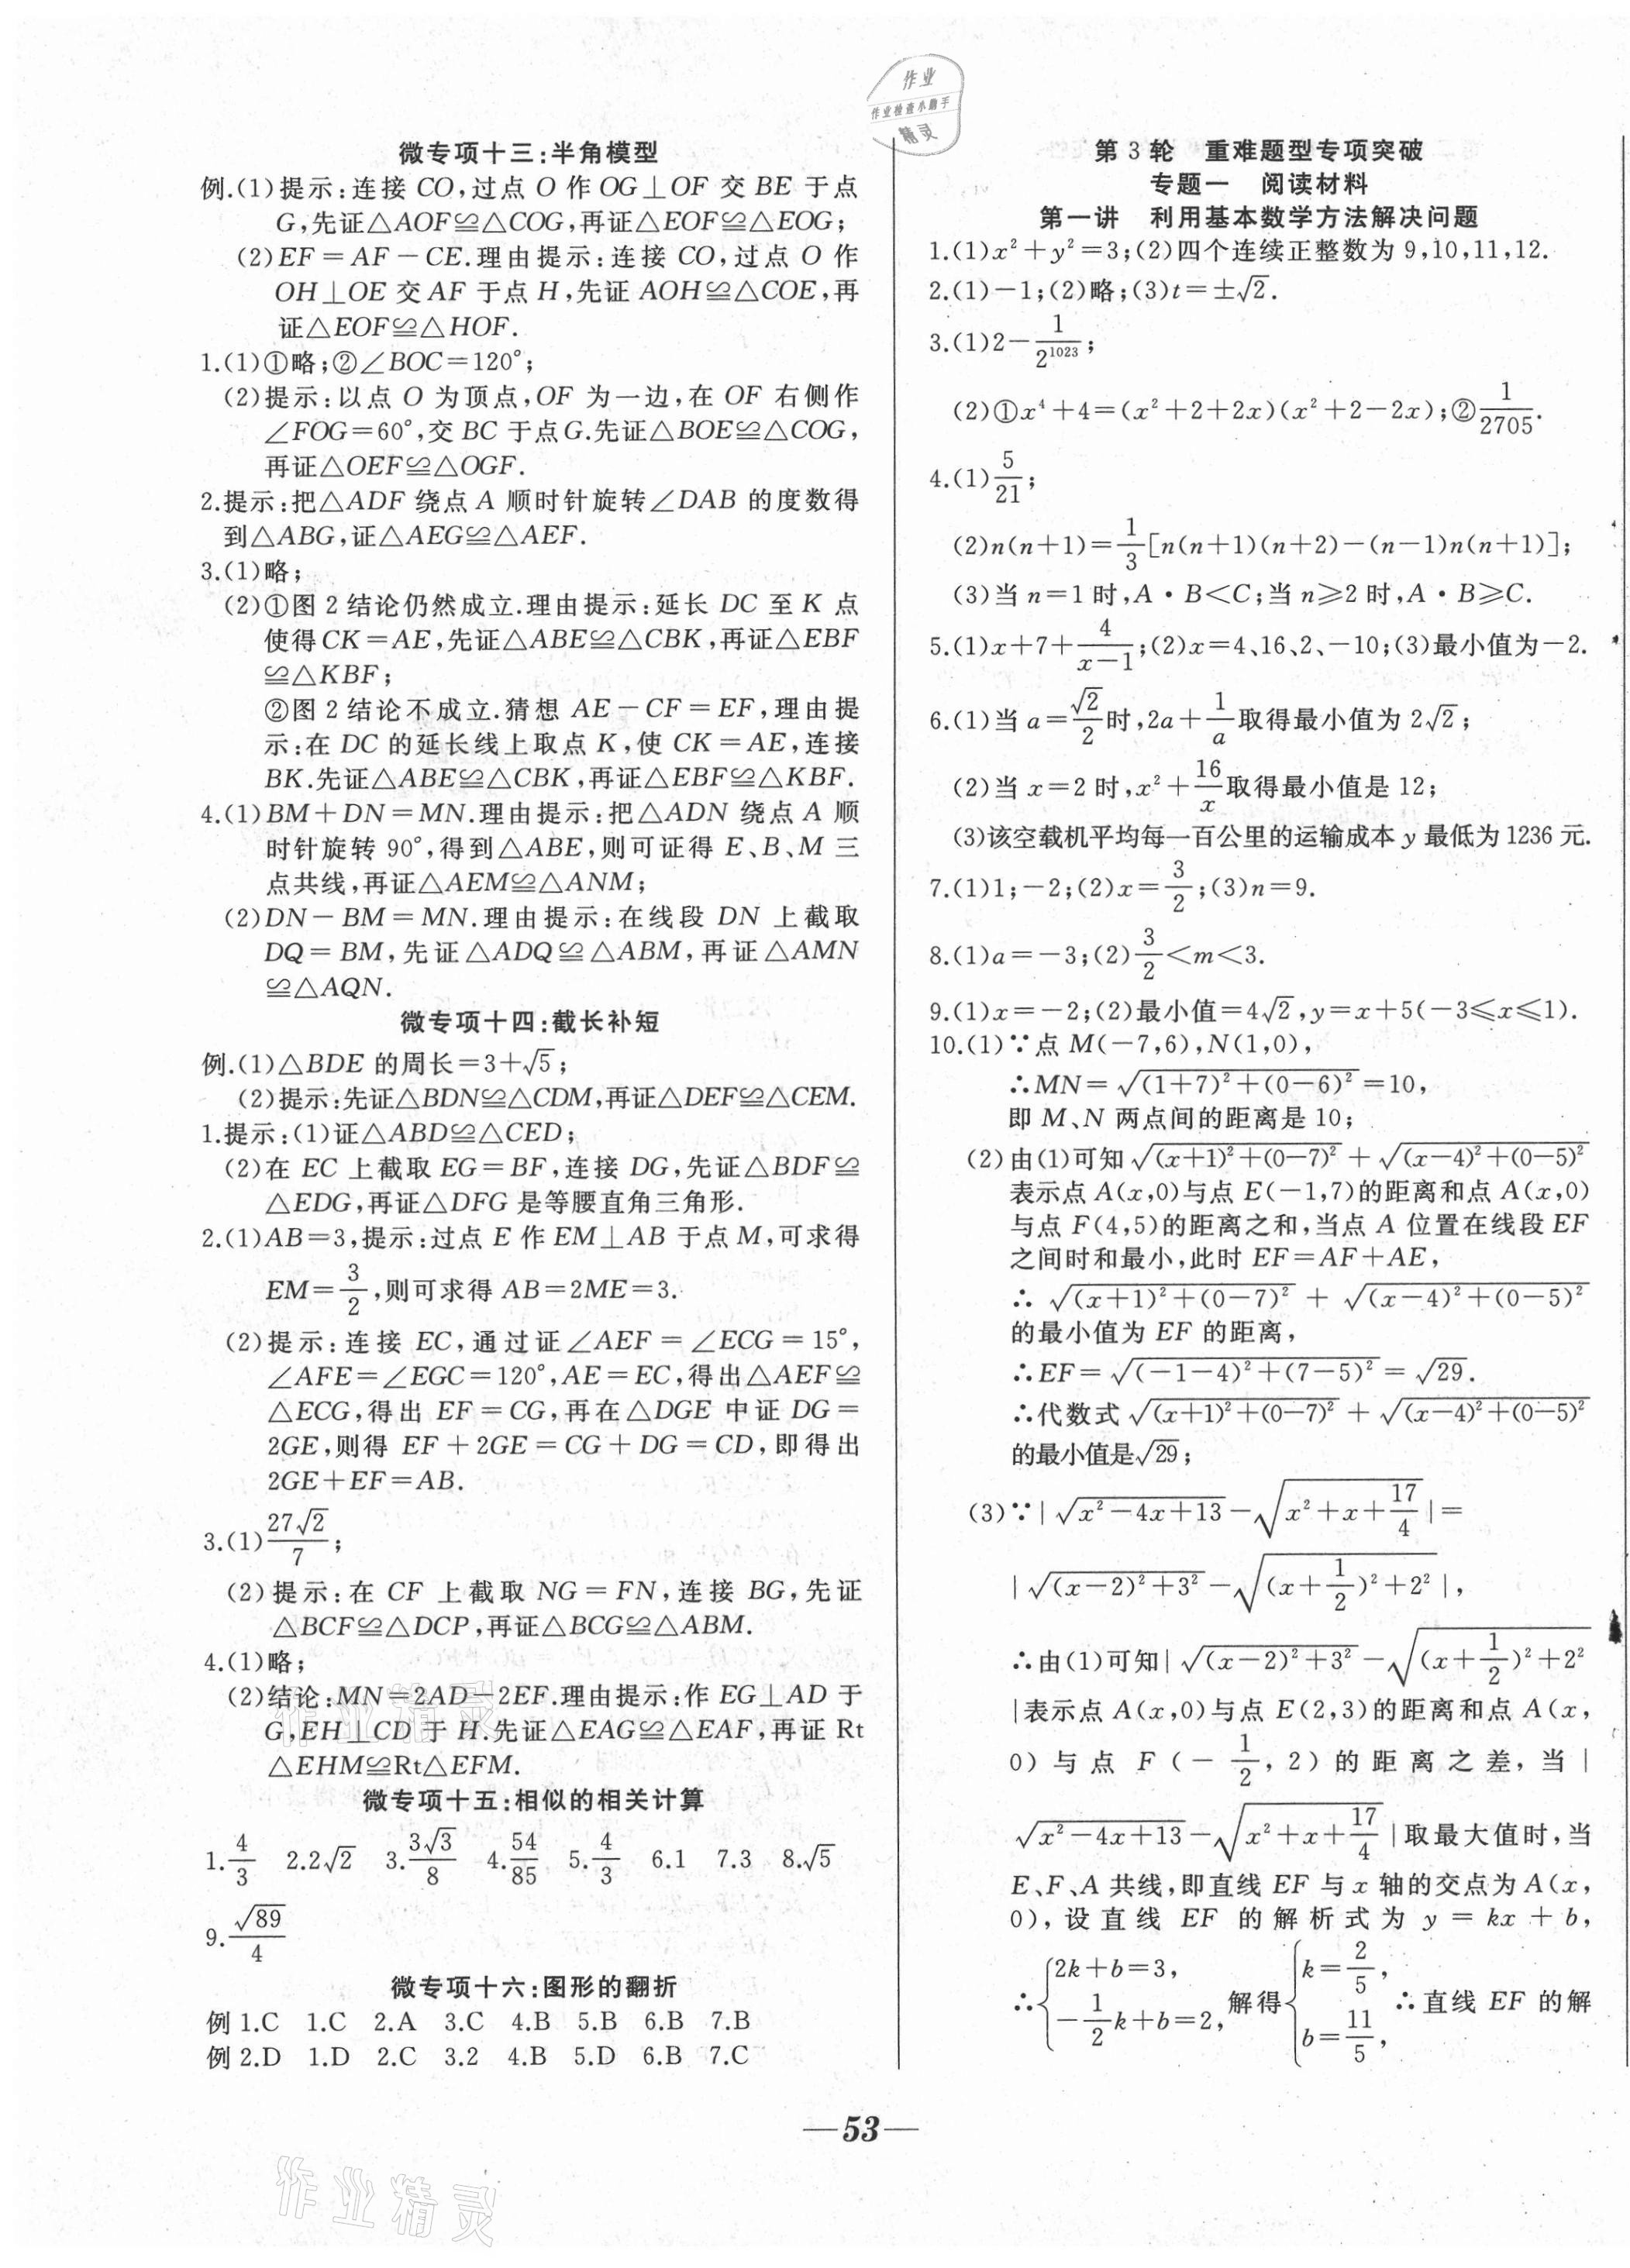 作业
作业检查小助手
精灵
微专项十三:半角模型
例.(1)提示:连接 CO,过点 O 作 OG⊥OF 交 BE 于点
G,先证△AOF≌△COG,再证△EOF≌△EOG;
(2)EF=AF-CE.理由提示:连接 CO,过点 O 作
OH⊥OE 交 AF 于点 H,先证 AOH≌△COE,再
证△EOF≌△HOF.
1.(1)①略;②∠BOC=120°;
(2)提示:以点 O 为顶点,OF 为一边,在 OF 右侧作
∠FOG=60°,交 BC 于点G.先证△BOE≌△COG,
再证△OEF≌△OGF.
2.提示:把△ADF 绕点 A 顺时针旋转∠DAB 的度数得
到△ABG,证△AEG≌△AEF.
3.(1)略;
(2)①图 2 结论仍然成立.理由提示:延长 DC 至 K 点
使得CK=AE,先证△ABE≌△CBK,再证△EBF
≌△KBF;
②图 2 结论不成立.猜想 AE-CF=EF,理由提
示:在 DC 的延长线上取点 K,使 CK=AE,连接
BK.先证△ABE≌△CBK,再证△EBF≌△KBF.
4.(1)BM+DN=MN.理由提示:把△ADN 绕点 A 顺
时针旋转 90°,得到△ABE,则可证得 E、B、M 三
点共线,再证△AEM≌△ANM;
(2)DN-BM=MN.理由提示:在线段 DN 上截取
DQ=BM,先证△ADQ≌△ABM,再证△AMN
≌△AQN.
微专项十四:截长补短
例.(1)△BDE 的周长=3+√5;
(2)提示:先证△BDN≌△CDM,再证△DEF≌△CEM.
1.提示:(1)证△ABD≌△CED;
(2)在 EC 上截取 EG=BF,连接 DG,先证△BDF≌
△EDG,再证△DFG 是等腰直角三角形.
2.(1)AB=3,提示:过点 E 作 EM⊥AB 于点 M,可求得
EM=3/2,则可求得 AB=2ME=3.
(2)提示:连接 EC,通过证∠AEF=∠ECG=15°,
∠AFE=∠EGC=120°,AE=EC,得出△AEF≌
△ECG,得出 EF=CG,再在△DGE 中证 DG=
2GE,则得 EF+2GE=CG+DG=CD,即得出
2GE+EF=AB.
3.(1)27√2/7;
(2)提示:在 CF 上截取 NG=FN,连接 BG,先证
△BCF≌△DCP,再证△BCG≌△ABM.
4.(1)略;
(2)结论:MN=2AD-2EF.理由提示:作 EG⊥AD 于
G,EH⊥CD 于 H.先证△EAG≌△EAF,再证 Rt
△EHM≌Rt△EFM.
微专项十五:相似的相关计算
1.4/3 2.2√2 3.3√3/8 4.54/85 5.4/3 6.1 7.3 8.√5
9.√89/4
微专项十六:图形的翻折
例 1.C 1.C 2.A 3.C 4.B 5.B 6.B 7.B
例 2.D 1.D 2.C 3.2 4.B 5.D 6.B 7.C
第 3 轮 重难题型专项突破
专题一 阅读材料
第一讲 利用基本数学方法解决问题
1.(1)x²+y²=3;(2)四个连续正整数为 9,10,11,12.
2.(1)-1;(2)略;(3)t=±√2.
3.(1)2-1/2¹⁰²³;
(2)①x⁴+4=(x²+2+2x)(x²+2-2x);②1/2705.
4.(1)5/21;
(2)n(n+1)=1/3[n(n+1)(n+2)-(n-1)n(n+1)];
(3)当 n=1 时,A·B<C;当 n≥2 时,A·B≥C.
5.(1)x+7+4/(x-1);(2)x=4、16、2、-10;(3)最小值为-2.
6.(1)当 a=√2/2时,2a+1/a取得最小值为 2√2;
(2)当 x=2 时,x²+16/x取得最小值是 12;
(3)该空载机平均每一百公里的运输成本 y 最低为 1236 元.
7.(1)1;-2;(2)x=3/2;(3)n=9.
8.(1)a=-3;(2)3/2<m<3.
9.(1)x=-2;(2)最小值=4√2,y=x+5(-3≤x≤1).
10.(1)∵点 M(-7,6),N(1,0),
∴MN=√((1+7)²+(0-6)²)=10,
即 M、N 两点间的距离是 10;
(2)由(1)可知√((x+1)²+(0-7)²)+√((x-4)²+(0-5)²)
表示点 A(x,0)与点 E(-1,7)的距离和点 A(x,0)
与点 F(4,5)的距离之和,当点 A 位置在线段 EF
之间时和最小,此时 EF=AF+AE,
∴√((x+1)²+(0-7)²)+√((x-4)²+(0-5)²)
的最小值为 EF 的距离,
∴EF=√((-1-4)²+(7-5)²)=√29.
∴代数式√((x+1)²+(0-7)²)+√((x-4)²+(0-5)²)
的最小值是√29;
(3)∵|√(x²-4x+13)-√(x²+x+17/4)|=
|√((x-2)²+3²)-√((x+1/2)²+2²)|,
∴由(1)可知|√((x-2)²+3²)-√((x+1/2)²+2²)
|表示点 A(x,0)与点 E(2,3)的距离和点 A(x,
0)与点 F(-1/2,2)的距离之差,当|
√(x²-4x+13)-√(x²+x+17/4)|取最大值时,当
E、F、A 共线,即直线 EF 与 x 轴的交点为 A(x,
0),设直线 EF 的解析式为 y=kx+b,
∴{2k+b=3, -1/2k+b=2, 解得{k=2/5, b=11/5, ∴直线 EF 的解
—53—
作业精灵
作业精灵